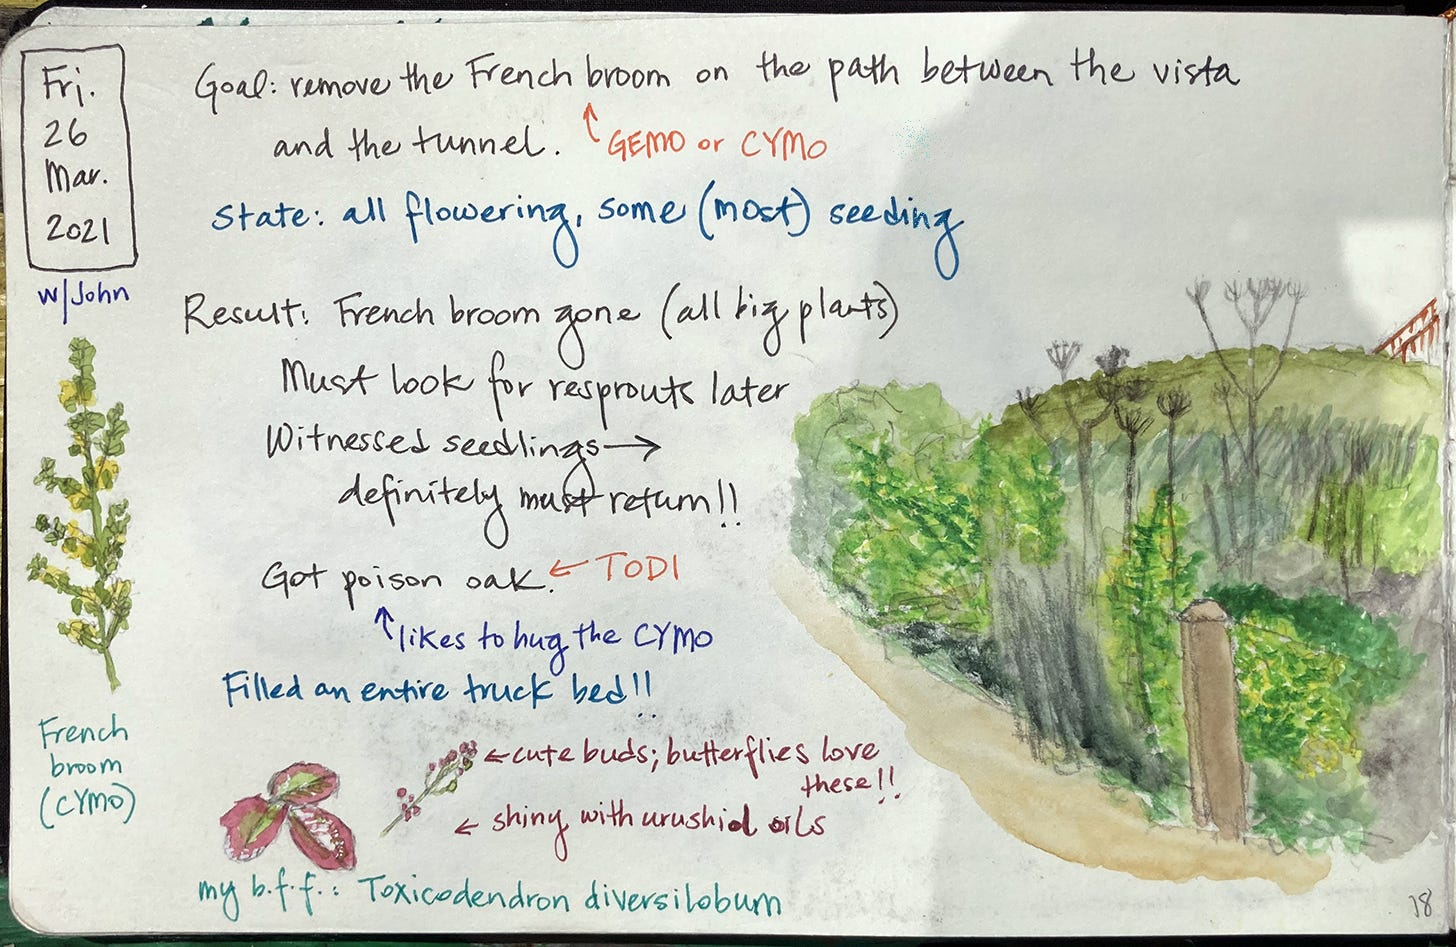 Fri.
26
Mar.
2021
w/John
Goal: remove the French broom on the path between the vista
and the tunnel.
GEMO or CYMO
State: all flowering, some (most) seeding
Result: French broom gone (all big plants)
Must look for resprouts later
Witnessed seedlings →
definitely must return!!
Got poison oak. ← TODI
↑ likes to hug the CYMO
Filled an entire truck bed!!
French
broom
(CYMO)
← cute buds; butterflies love
these!!
← shiny with urushiol oils
my b.f.f.: Toxicodendron diversilobum
18